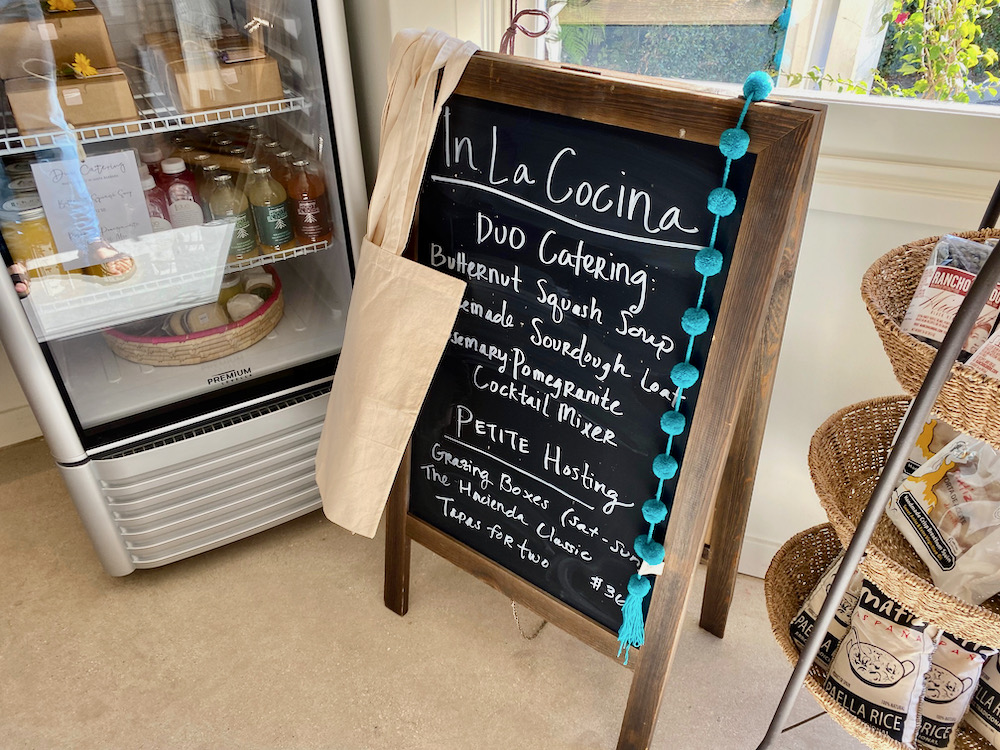 In La Cocina
Duo Catering:
Butternut Squash Soup
emade Sourdough Loaf
semary Pomegranite
Cocktail Mixer
PETITE Hosting
Grazing Boxes (Sat-Sun
The Hacienda Classic
Tapas for two
$36
Duo Catering
PREMIUM
RANCHO
PAELLA RICE
RICE